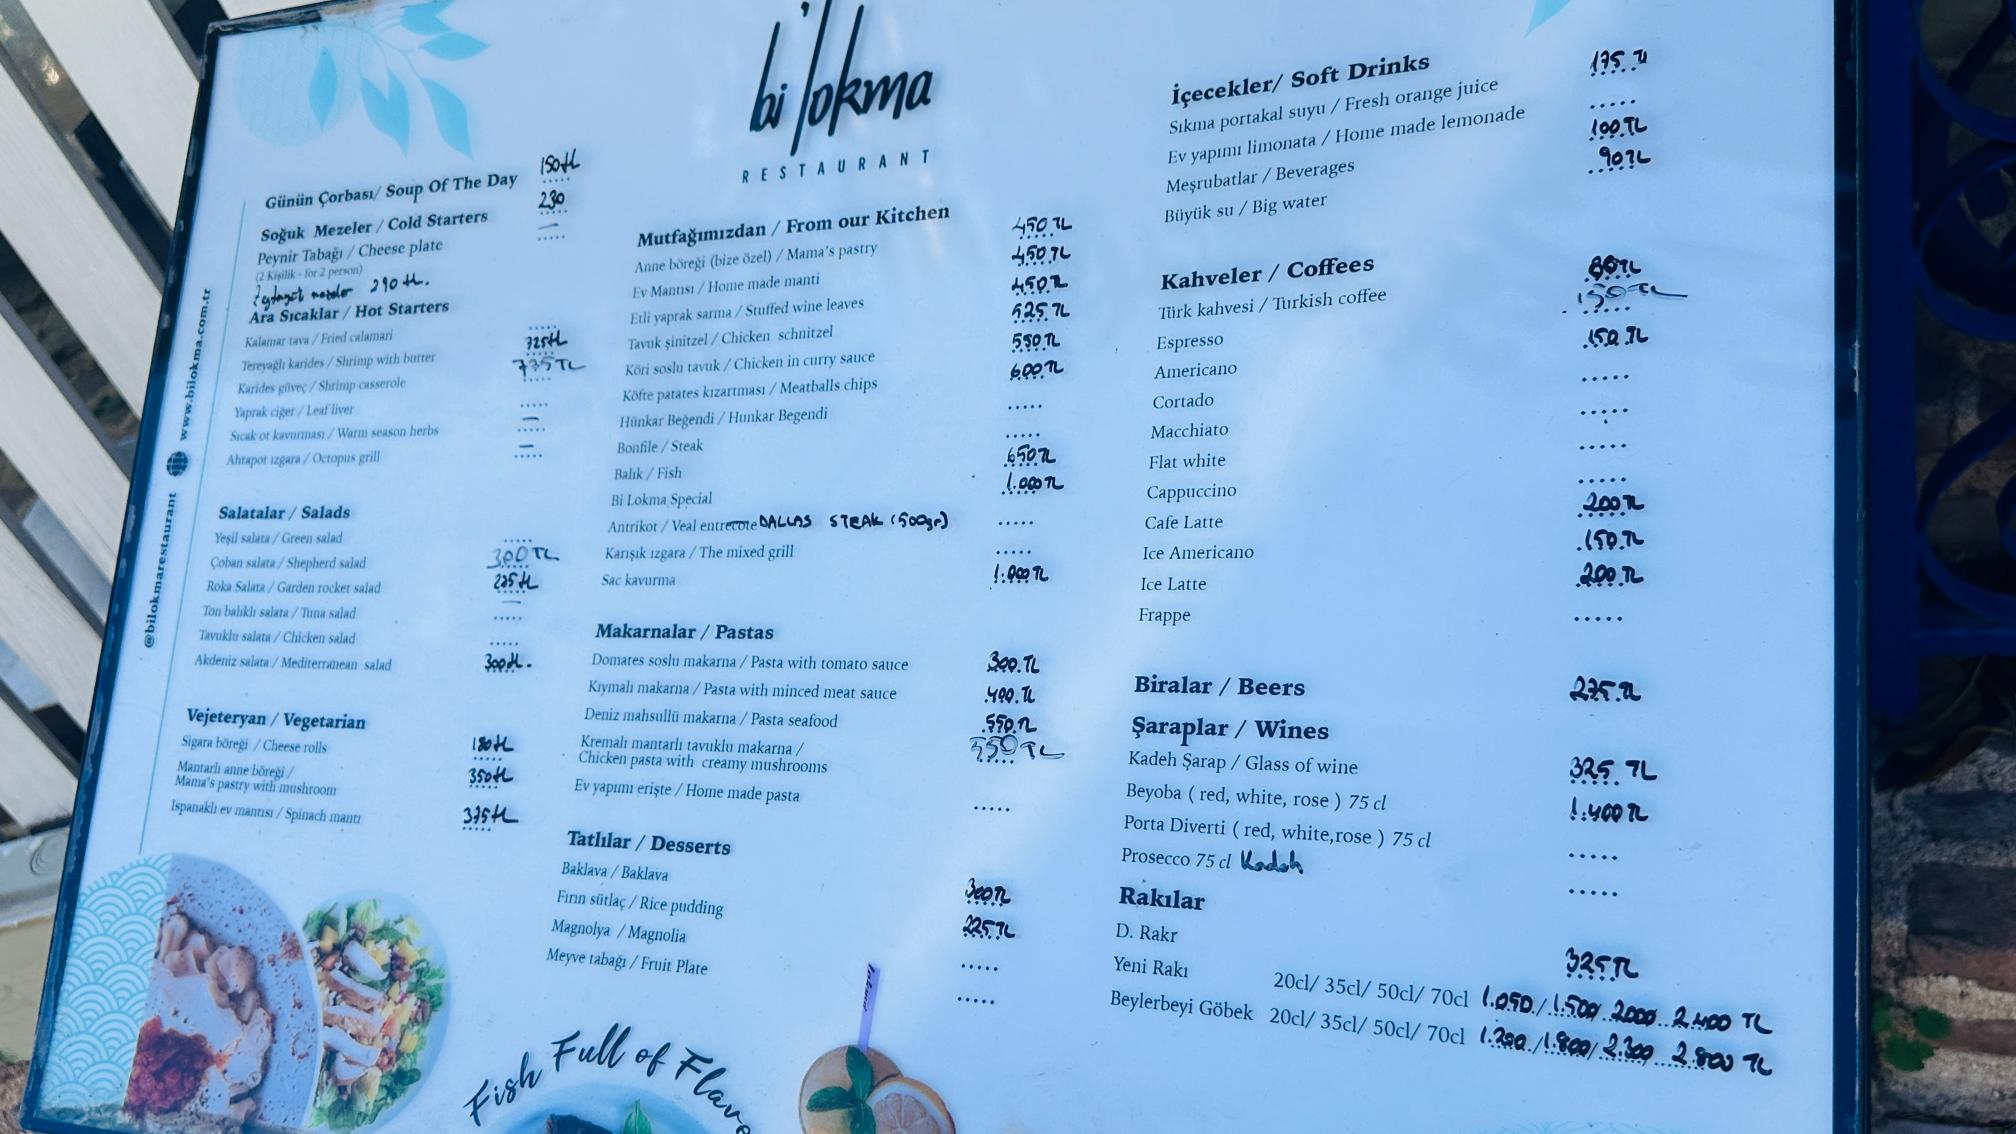 bi'lokma
RESTAURANT
www.bilokma.com.tr
@bilokmarestaurant
Günün Çorbası/ Soup Of The Day 150 tL
Soğuk Mezeler / Cold Starters 230
Peynir Tabağı / Cheese plate
(2 Kişilik - for 2 person)
290 tL.
Ara Sıcaklar / Hot Starters
Kalamar tava / Fried calamari
Tereyağlı karides / Shrimp with butter 725 tL
Karides güveç / Shrimp casserole 775 TL
Yaprak ciğer / Leaf liver
Sıcak ot kavurması / Warm season herbs
Ahtapot ızgara / Octopus grill
Salatalar / Salads
Yeşil salata / Green salad
Çoban salata / Shepherd salad 300 TL
Roka Salata / Garden rocket salad
Ton balıklı salata / Tuna salad
Tavuklu salata / Chicken salad
Akdeniz salata / Mediterranean salad 300 tL.
Vejeteryan / Vegetarian
Sigara böreği / Cheese rolls 180 tL
Mantarlı anne böreği /
Mama's pastry with mushroom 350 tL
Ispanaklı ev mantısı / Spinach mantı 375 tL
Mutfağımızdan / From our Kitchen
Anne böreği (bize özel) / Mama's pastry 450 TL
Ev Mantısı / Home made manti 450 TL
Etli yaprak sarma / Stuffed wine leaves 450 TL
Tavuk şinitzel / Chicken schnitzel 525 TL
Köri soslu tavuk / Chicken in curry sauce 550 TL
Köfte patates kızartması / Meatballs chips 600 TL
Hünkar Beğendi / Hunkar Begendi
Bonfile / Steak
Balık / Fish 650 TL
Bi Lokma Special 1.000 TL
Antrikot / Veal entrecote DALLAS STEAK (500gr)
Karışık ızgara / The mixed grill
Sac kavurma 1.000 TL
Makarnalar / Pastas
Domates soslu makarna / Pasta with tomato sauce 300 TL
Kıymalı makarna / Pasta with minced meat sauce 400 TL
Deniz mahsullü makarna / Pasta seafood 550 TL
Kremalı mantarlı tavuklu makarna / 550 TL
Chicken pasta with creamy mushrooms
Ev yapımı erişte / Home made pasta
Tatlılar / Desserts
Baklava / Baklava
Fırın sütlaç / Rice pudding 300 TL
Magnolya / Magnolia 225 TL
Meyve tabağı / Fruit Plate
Fish Full of
İçecekler/ Soft Drinks
Sıkma portakal suyu / Fresh orange juice 175 TL
Ev yapımı limonata / Home made lemonade
Meşrubatlar / Beverages 100 TL
Büyük su / Big water 90 TL
Kahveler / Coffees
Türk kahvesi / Turkish coffee
Espresso 150 TL
Americano 150 TL
Cortado
Macchiato
Flat white
Cappuccino
Cafe Latte 200 TL
Ice Americano 150 TL
Ice Latte 200 TL
Frappe
Biralar / Beers 275 TL
Şaraplar / Wines
Kadeh Şarap / Glass of wine 325 TL
Beyoba ( red, white, rose ) 75 cl 1.400 TL
Porta Diverti ( red, white,rose ) 75 cl
Prosecco 75 cl Kadeh
Rakılar
D. Rakr 325 TL
Yeni Rakı 20cl/ 35cl/ 50cl/ 70cl 1.050 / 1.500 2000 2.400 TL
Beylerbeyi Göbek 20cl/ 35cl/ 50cl/ 70cl 1.200 / 1.800 / 2.300 2.800 TL